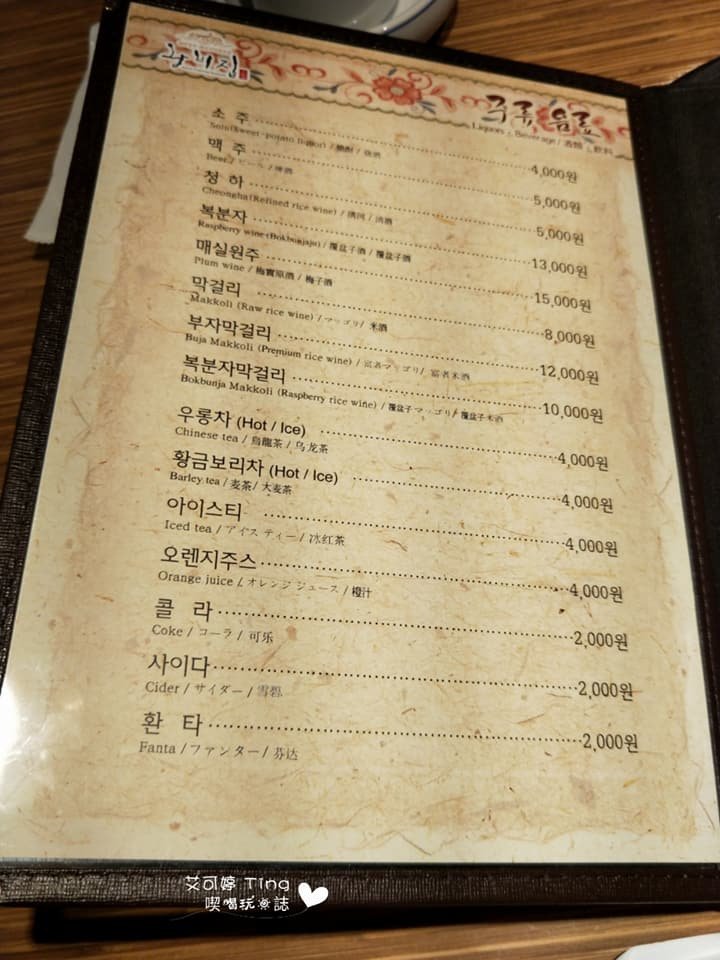 주류 음료
Liquors , Beverage / 酒類 , 飲料
소 주 4,000원
Soju(Sweet-potato liquor) / 焼酎 / 烧酒
맥 주 5,000원
Beer / ビール / 啤酒
청 하 5,000원
Cheongha(Refined rice wine) / 清河 / 清酒
복분자 13,000원
Raspberry wine(Bokbunjaju) / 覆盆子酒 / 覆盆子酒
매실원주 15,000원
Plum wine / 梅實原酒 / 梅子酒
막걸리 8,000원
Makkoli (Raw rice wine) / マッコリ / 米酒
부자막걸리 12,000원
Buja Makkoli (Premium rice wine) / 富者マッコリ / 富者米酒
복분자막걸리 10,000원
Bokbunja Makkoli (Raspberry rice wine) / 覆盆子マッコリ / 覆盆子米酒
우롱차 (Hot / Ice) 4,000원
Chinese tea / 烏龍茶 / 乌龙茶
황금보리차 (Hot / Ice) 4,000원
Barley tea / 麦茶 / 大麦茶
아이스티 4,000원
Iced tea / アイス ティー / 冰红茶
오렌지주스 4,000원
Orange juice / オレンジ ジュース / 橙汁
콜 라 2,000원
Coke / コーラ / 可乐
사이다 2,000원
Cider / サイダー / 雪碧
환 타 2,000원
Fanta / ファンター / 芬达
艾可婷 Ting
喫喝玩樂誌